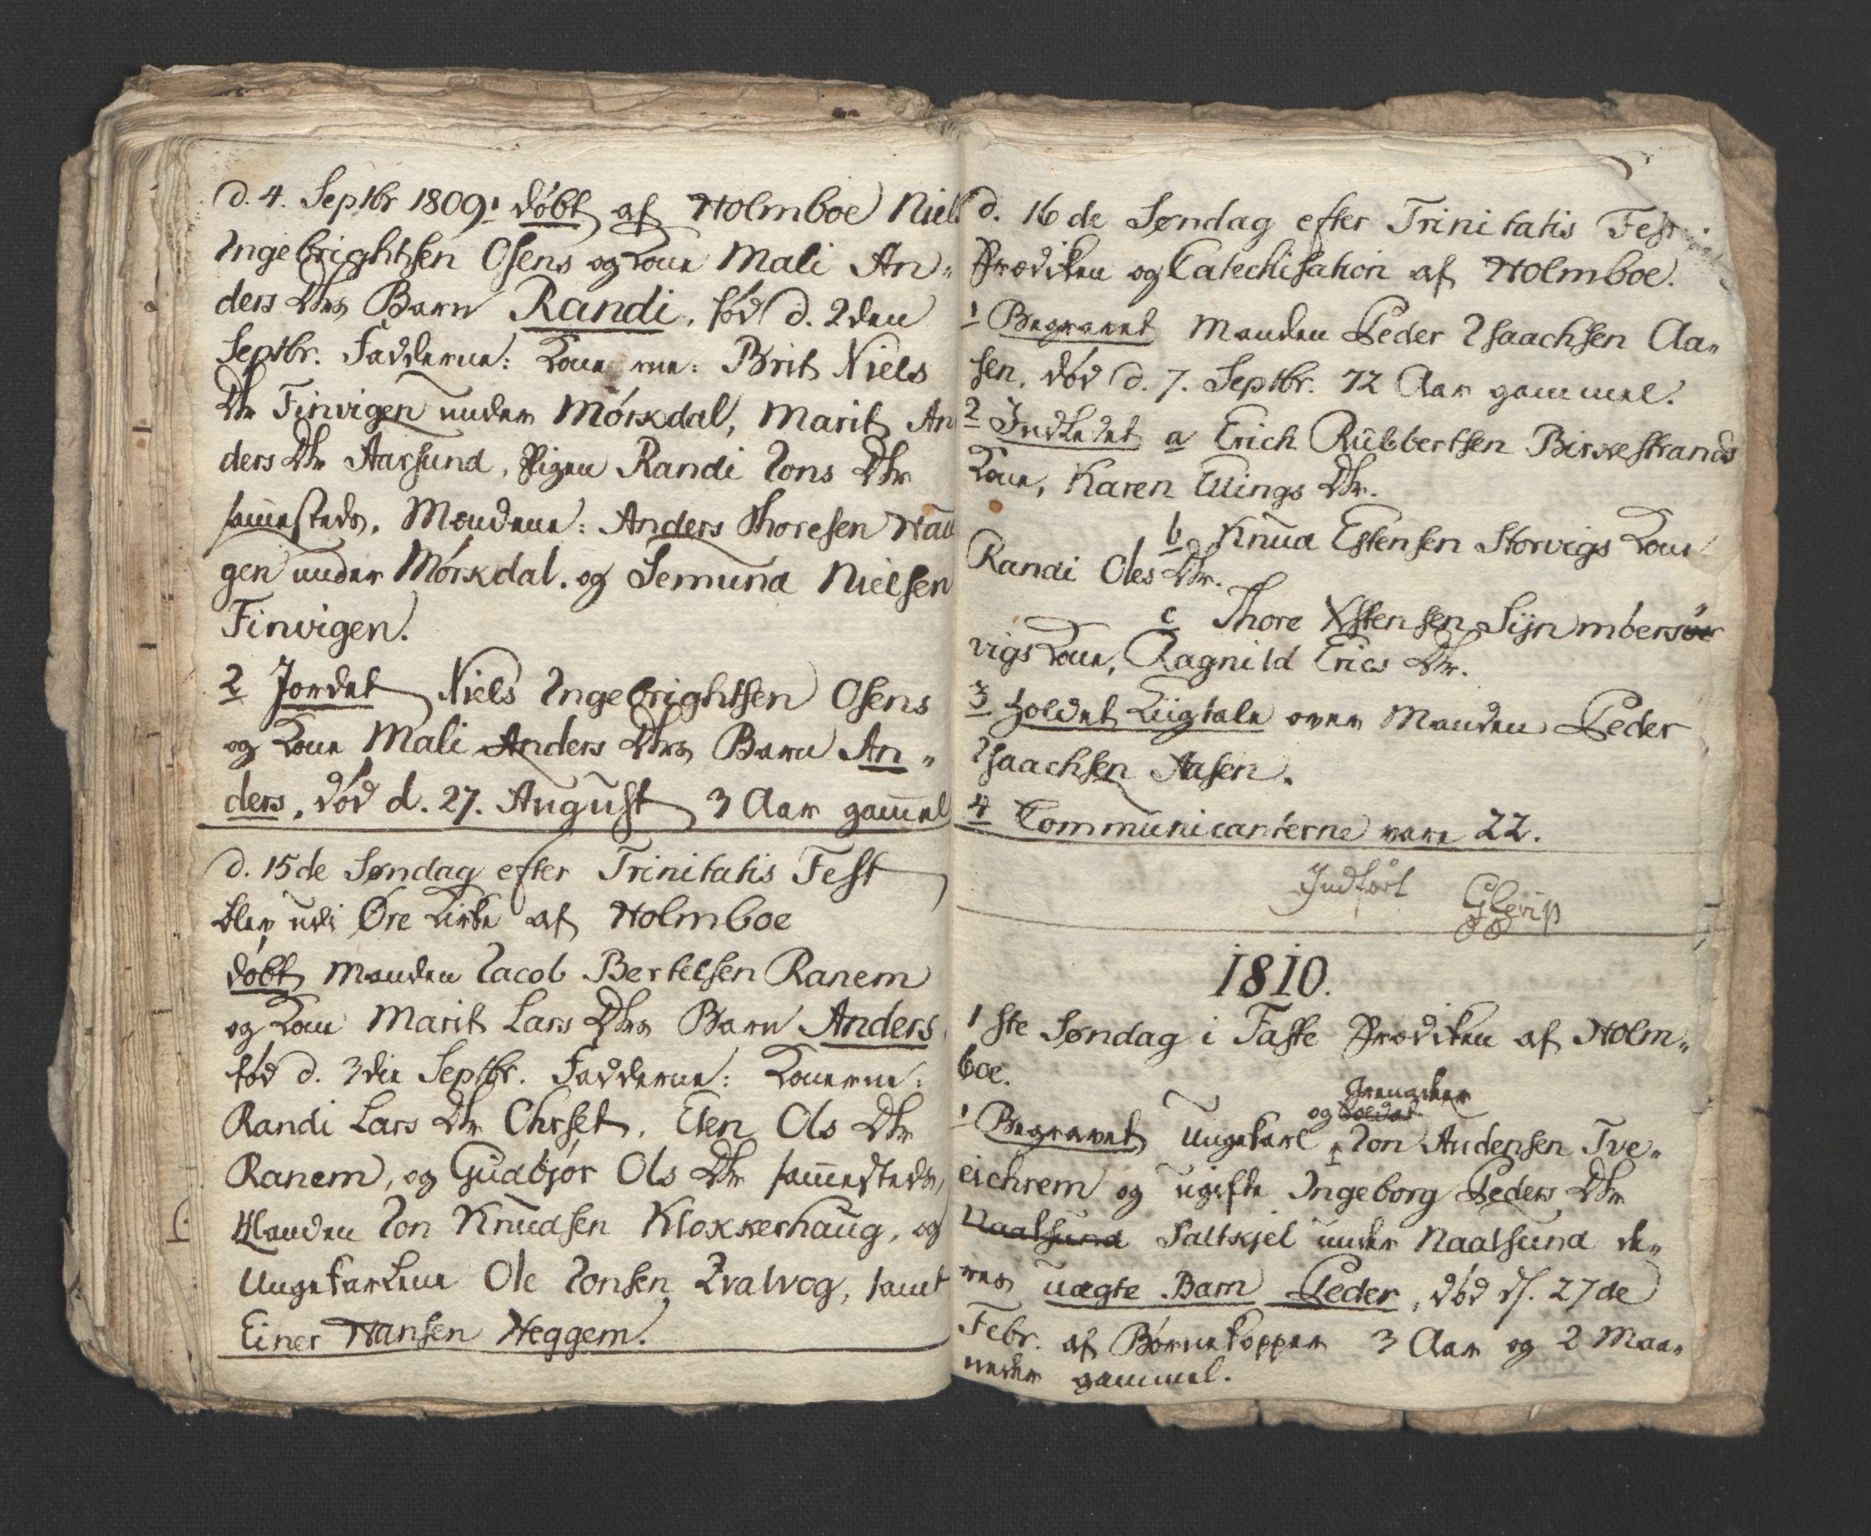 d. 4. Septbr 1809. 1 døbt af Holmboe Niels
Ingebrightsen Osens og Kone Mali An=
ders Dtrs Barn Randi, fød d. 2den
Septbr. Fadderne: Konerne: Brit Niels
Dtr Finvigen under Mørkdal, Marit An
ders Dtr Aarsund, Pigen Randi Jons Dtr
sam̄esteds, Mændene: Anders Thoresen Hau
gen under Mørkdal. og Semund Nielsen
Finvigen.
2 Jordet Niels Ingebrightsen Osens
og Kone Mali Anders Dtrs Barn An=
ders, død d. 27. August 3 Aar gam̄el
d. 15de Søndag efter Trinitatis Fest
blev udi Øre Kirke af Holmboe
døbt Manden Jacob Bertelsen Ranem
og Kone Marit Lars Dtrs Barn Anders
fød d. 3die Septbr. Fadderne: Konerne:
Randi Lars Dtr Ohrset, Elen Ols Dtr
Ranem, og Gudbjør Ols Dtr sam̄esteds,
Manden Jon Knudsen Klokkerhaug, og
Ungekarlene Ole Jonsen Kvalvog, samt
Einer Hansen Heggem.
d. 16de Søndag efter Trinitatis Fest
Prædiken og Catechisation af Holmboe.
1 Begravet Manden Peder Isaachsen Aa=
sen, død d. 7. Septbr. 72 Aar gammel.
2 Indledet a Erich Rubbertsen Birkestrands
Kone, Karen Ellings Dtr.
b Knud Estensen Storvigs Kone
Randi Oles Dtr.
c Thore Ystensen Sijnmbersør
vigs Kone, Ragnild Erics Dtr.
3 Holdet Liigtale over Manden Peder
Isaachsen Aasen.
4 Communicanterne vare 22.
Indført
1810.
1ste Søndag i Faste Prædiken af Holm=
boe.
Grenadeer
og Soldat
1 Begravet Ungekarl Jon Andersen Tve=
eichrem og ugifte Ingeborg Peders Dtr
Naalsund Saltkjel under Naalsund de=
res uægte Barn Peder, død d. 27de
Febr. af Børnekopper 3 Aar og 2 Maa=
neder gammel.